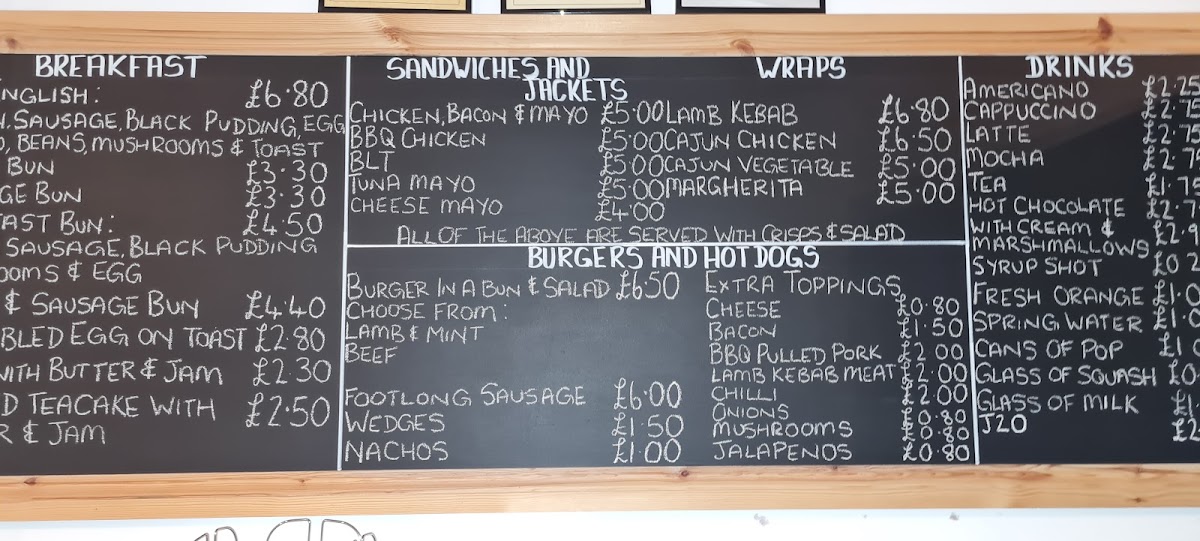 BREAKFAST
ENGLISH: £6.80
SAUSAGE, BLACK PUDDING, EGG
BEANS, MUSHROOMS & TOAST
BUN £3.30
GE BUN £3.30
AST BUN: £4.50
SAUSAGE, BLACK PUDDING
OOMS & EGG
& SAUSAGE BUN £4.40
BLED EGG ON TOAST £2.80
WITH BUTTER & JAM £2.30
D TEACAKE WITH £2.50
R & JAM
SANDWICHES AND
JACKETS
CHICKEN, BACON & MAYO £5.00
BBQ CHICKEN £5.00
BLT £5.00
TUNA MAYO £5.00
CHEESE MAYO £4.00
WRAPS
LAMB KEBAB £6.80
CAJUN CHICKEN £6.50
CAJUN VEGETABLE £5.00
MARGHERITA £5.00
ALL OF THE ABOVE ARE SERVED WITH CRISPS & SALAD
BURGERS AND HOTDOGS
BURGER IN A BUN & SALAD £6.50
CHOOSE FROM:
LAMB & MINT
BEEF
FOOTLONG SAUSAGE £6.00
WEDGES £1.50
NACHOS £1.00
EXTRA TOPPINGS
CHEESE £0.80
BACON £1.50
BBQ PULLED PORK £2.00
LAMB KEBAB MEAT £2.00
CHILLI £2.00
ONIONS £0.80
MUSHROOMS £0.80
JALAPENOS £0.80
DRINKS
AMERICANO £2.25
CAPPUCCINO £2.75
LATTE £2.75
MOCHA £2.7
TEA £1.7
HOT CHOCOLATE £2.7
WITH CREAM & £2.9
MARSHMALLOWS
SYRUP SHOT £0.2
FRESH ORANGE £1.0
SPRING WATER £1.0
CANS OF POP £1.0
GLASS OF SQUASH £0.
GLASS OF MILK
J2O £2